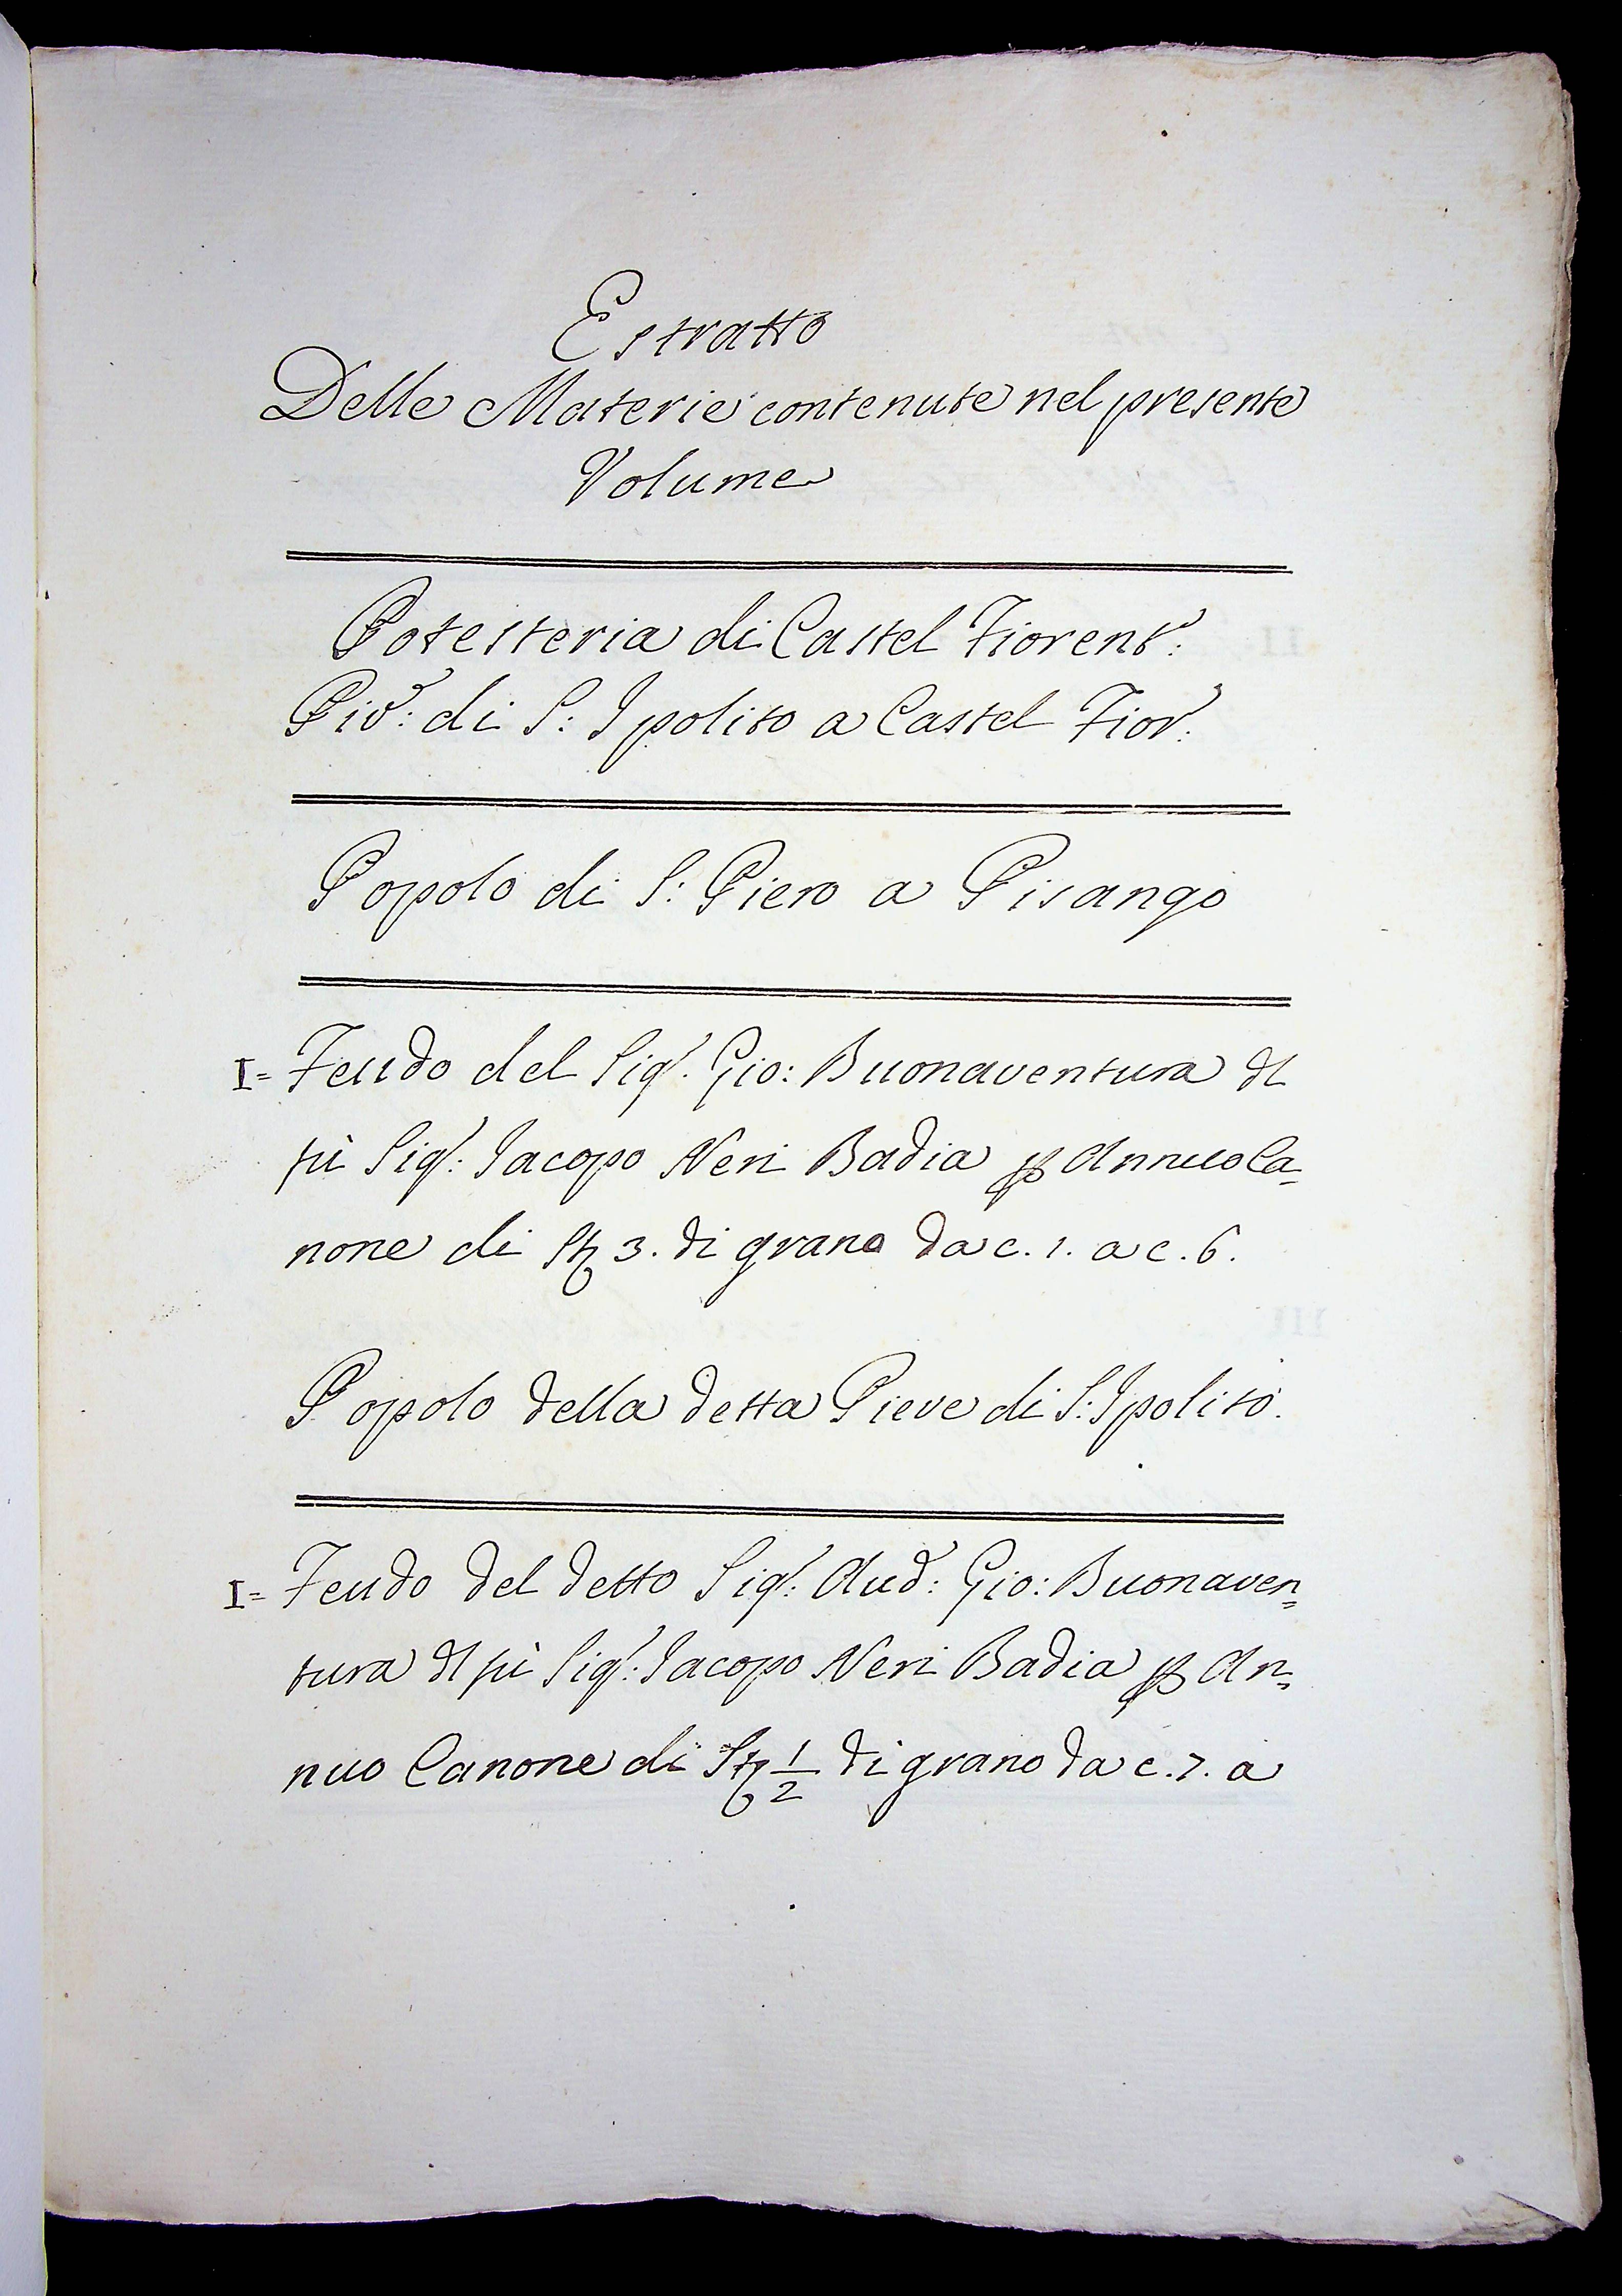 Estratto
Delle Materie contenute nel presente
Volume
Potesteria di Castel Fiorent:
Piv: di S: Ipolito a Castel Fior:
Popolo di S: Piero a Pisango
I= Feudo del Sigr. Gio: Buonaventura dl
fù Sigr: Iacopo Neri Badia p Annuo Ca=
none di St 3. di grano da c. 1. a c. 6.
Popolo della detta Pieve di S: Ipolito.
I= Feudo del detto Sigr: Aud: Gio: Buonaven=
tura dl fù Sigr: Iacopo Neri Badia p An=
nuo Canone di St 1/2 di grano da c. 7. a